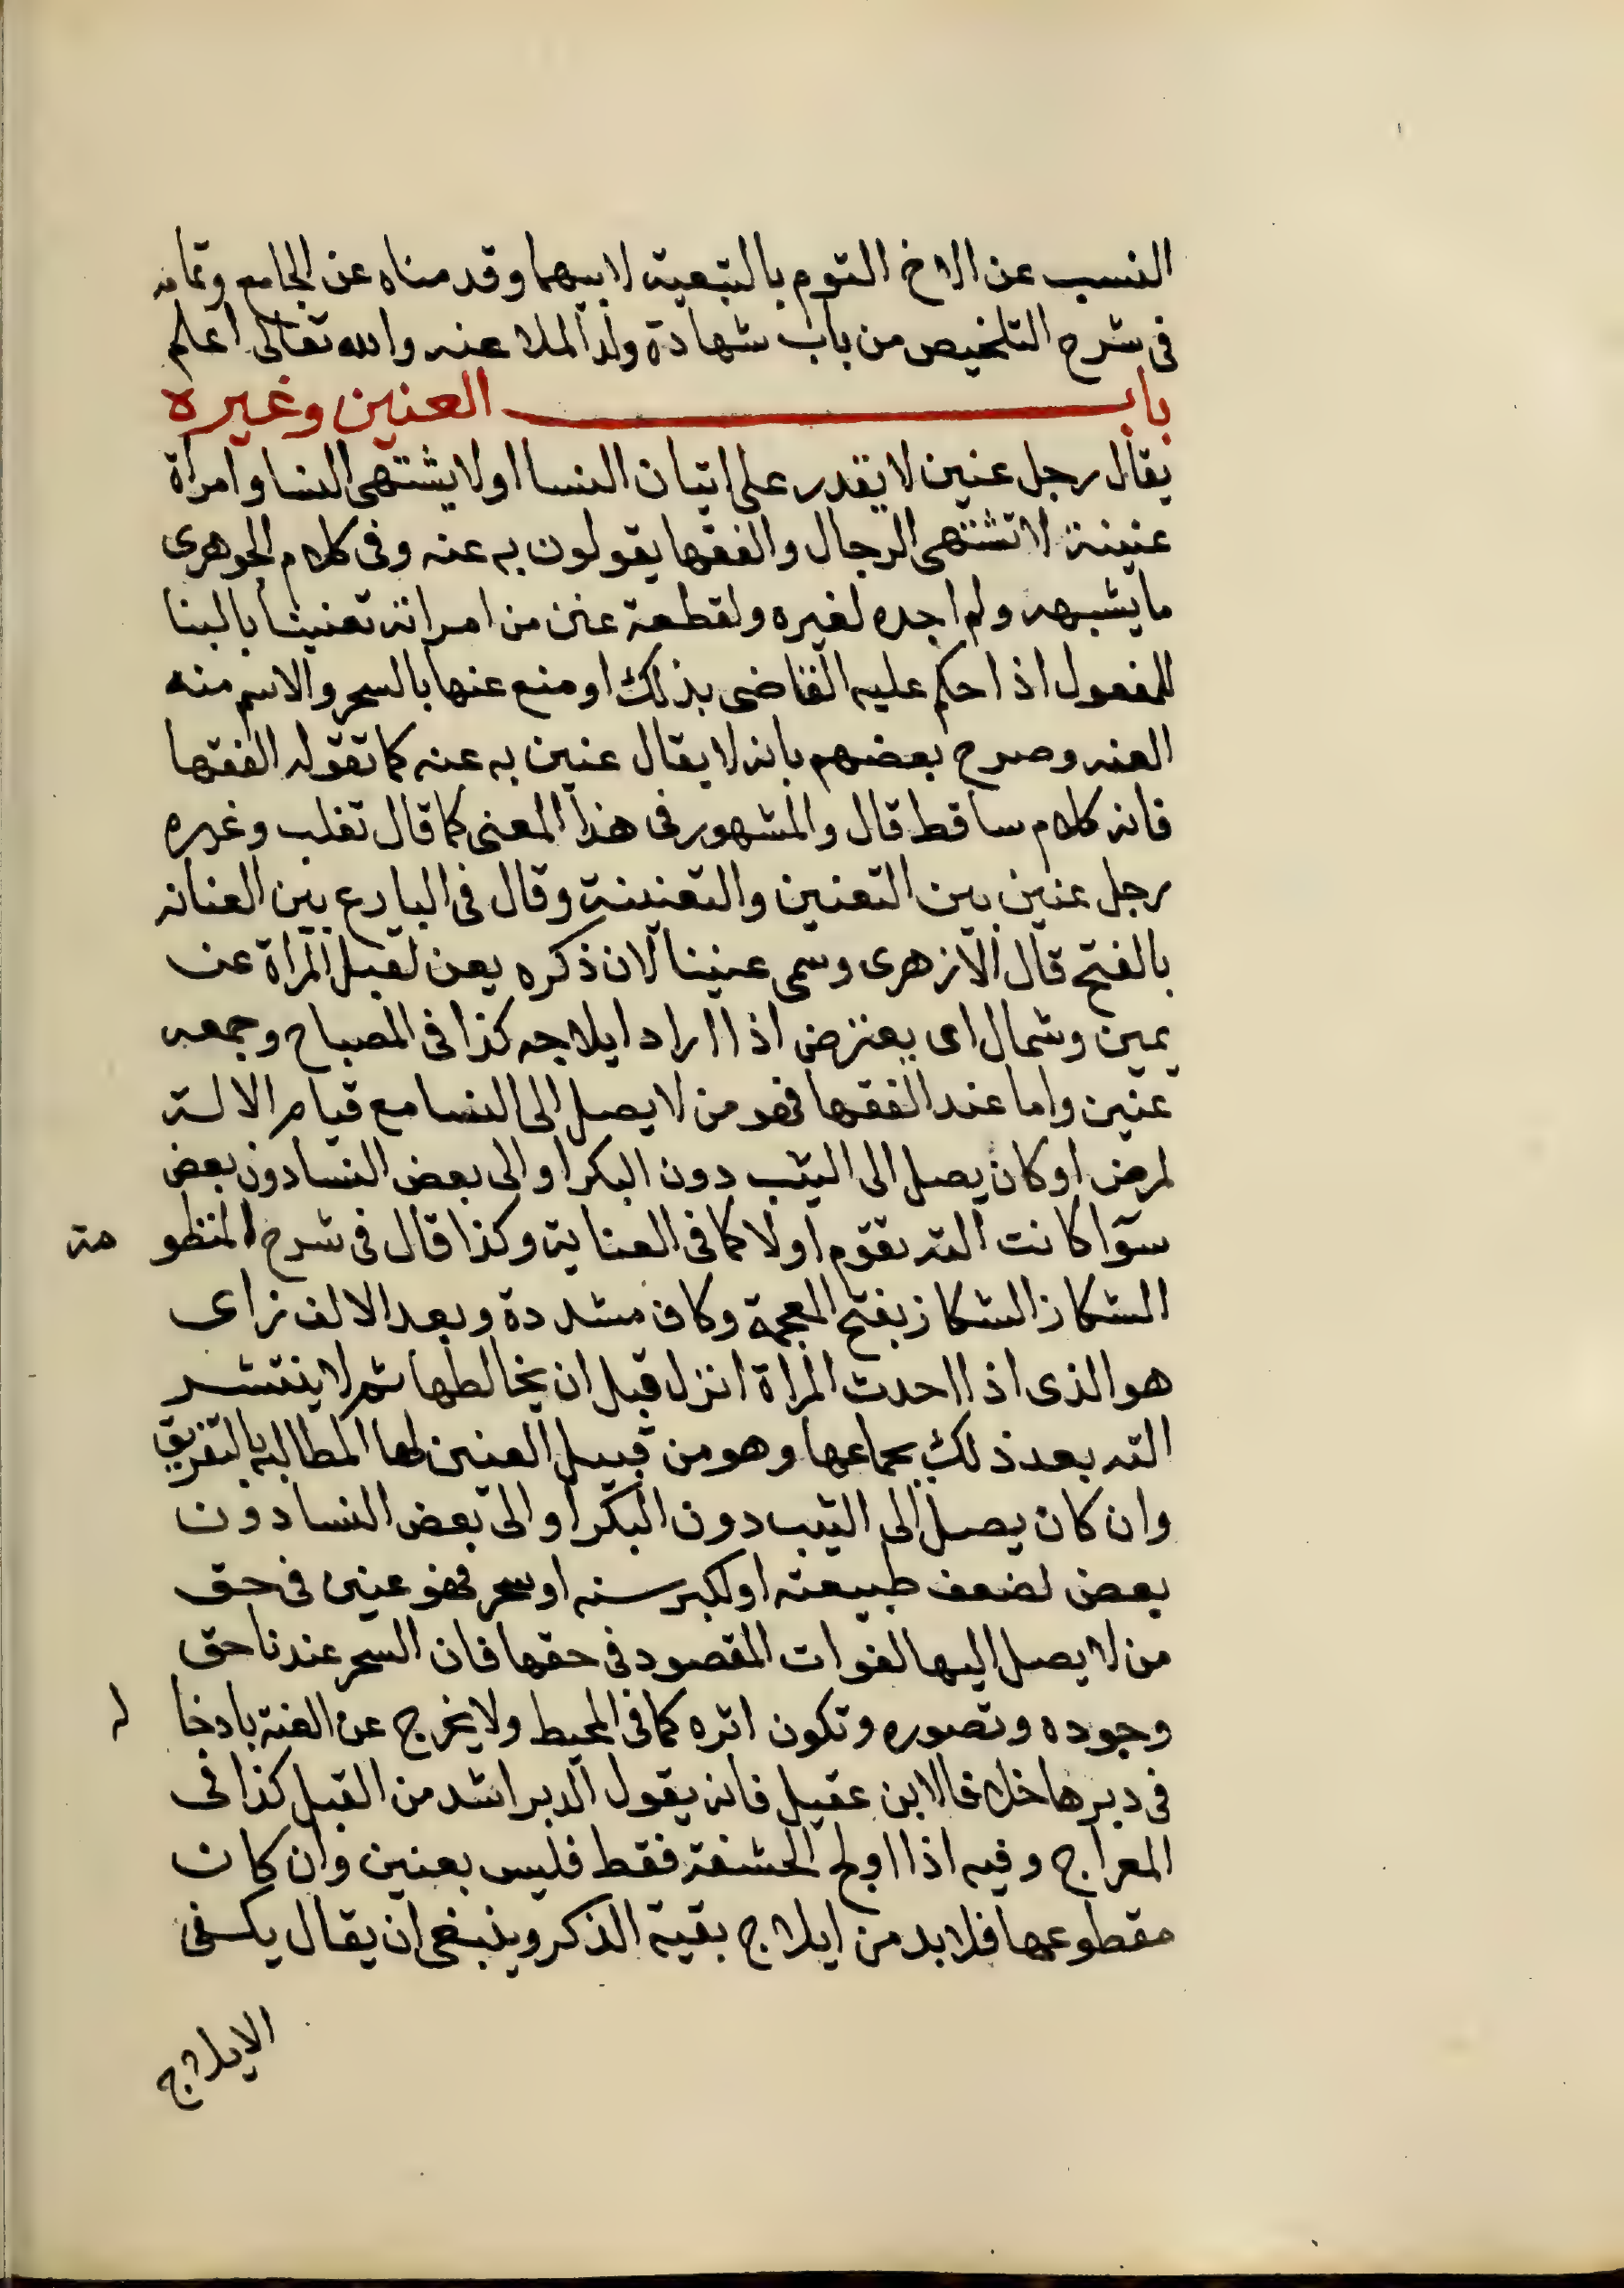 النسب عن الاخ التوم بالتبعية لابيهما وقدمناه عن الجامع وتمامه
فى شرح التلخيص من باب شهادة ولد الملاعنه والله تعالى اعلم
باب العنين وغيره
يقال رجل عنين لا يقدر على اتيان النسا اولا يشتهى النسا وامراة
عنينة لا تشتهى الرجال والفقها يقولون به عنه وفى كلام الجوهرى
ما يشبهه ولم اجده لغيره ولقطعة عنن من امراته تعنينا بالبنا
للمفعول اذا حكم عليه القاضى بذلك او منع عنها بالسحر والاسم منه
العنه وصرح بعضهم بانه لا يقال عنين به عنه كما تقوله الفقها
فانه كلام ساقط قال والمشهور فى هذا المعنى كما قال تغلب وغيره
رجل عنين بين التعنين والتعنينة وقال فى البارع بين العنانه
بالفتح قال الازهرى وسمى عنينا لان ذكره يعن لقبل المراة عن
يمين وشمال اى يعترض اذا اراد ايلاجه كذا فى المصباح وجمعه
عنين واما عند الفقها فهو من لا يصل الى النسا مع قيام الالة
لمرض او كان يصل الى الثيب دون البكر او الى بعض النسا دون بعض
سوآ كانت الته تقوم اولا كما فى العناية وكذا قال فى شرح المنظو مة
الشكاز الشكاز بفتح المعجمة وكاف مشددة وبعد الالف زاى
هو الذى اذا احدث المراة انزل قبل ان يخالطها ثم لا ينتشر
الته بعد ذلك بجماعها وهو من قبيل العنين لها المطالبه بالتفريق
وان كان يصل الى الثيب دون البكر او الى بعض النسا دون
بعض لضعف طبيعته او لكبر سنه او سحر فهو عنين فى حق
من لا يصل اليها لفوات المقصود فى حقها فان السحر عندنا حق
وجوده وتصوره وتكون اثره كما فى المحيط ولا يخرج عن العنة بادخا له
فى دبرها خلافا لابن عقيل فانه يقول الدبر اشد من القبل كذا فى
المعراج وفيه اذا اولج الحشفة فقط فليس بعنين وان كان
مقطوعها فلا بد من ايلاج بقية الذكر وينبغى ان يقال يكفى
الايلاج